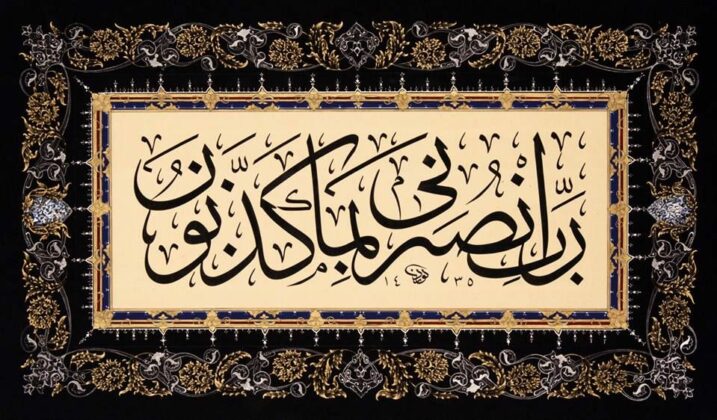 رَبِّ انْصُرْنِي بِمَا كَذَّبُونِ
١٤٣٥